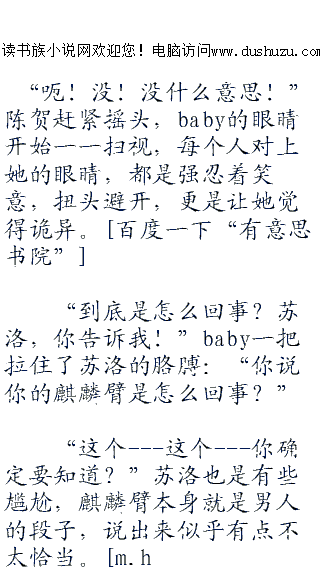 读书族小说网欢迎您！电脑访问www.dushuzu.com
“呃！没！没什么意思！”
陈贺赶紧摇头，baby的眼睛
开始一一扫视，每个人对上
她的眼睛，都是强忍着笑
意，扭头避开，更是让她觉
得诡异。[百度一下“有意思
书院”]
“到底是怎么回事？苏
洛，你告诉我！”baby一把
拉住了苏洛的胳膊：“你说
你的麒麟臂是怎么回事？”
“这个---这个---你确
定要知道？”苏洛也是有些
尴尬，麒麟臂本身就是男人
的段子，说出来似乎有点不
太恰当。[m.h